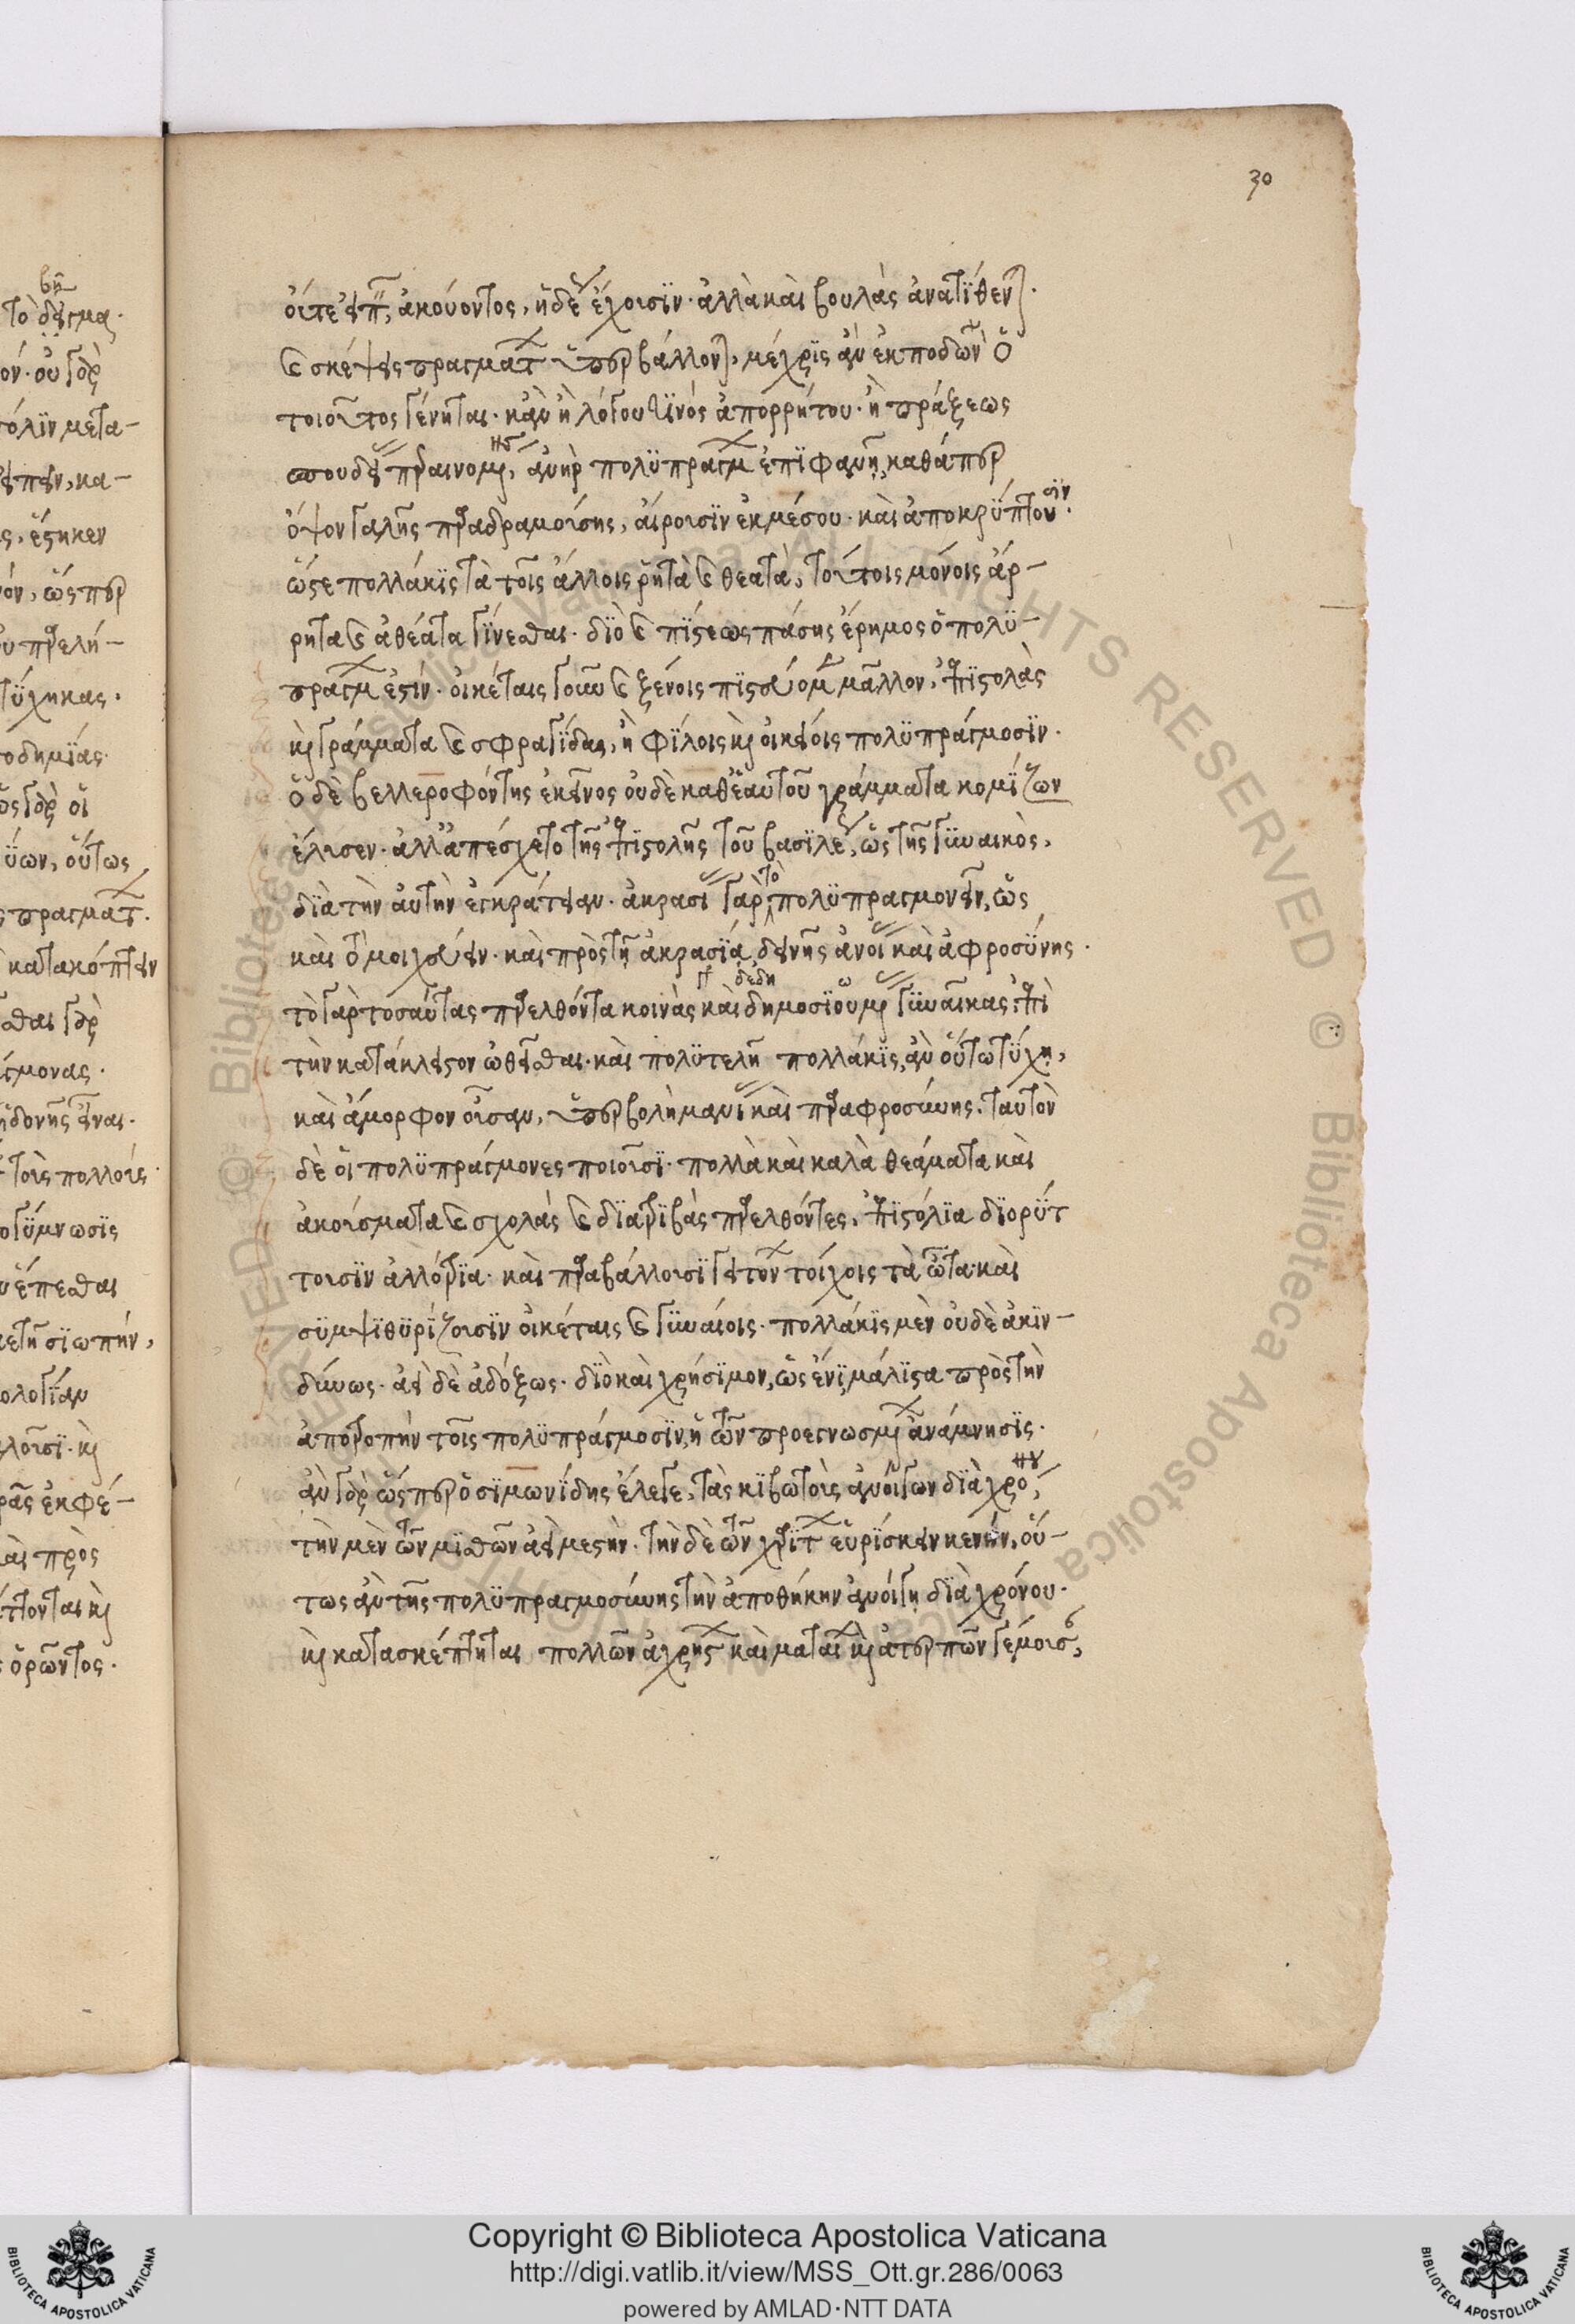 30
οὔτε εἰπεῖν ἀκούοντος, ἡδέως ἔχουσιν· ἀλλὰ καὶ βουλὰς ἀνατίθενται·
καὶ σκέψεις πραγμάτων ὑπερβάλλονται, μέχρις ἂν ἐκποδὼν ὁ
τοιοῦτος γένηται· κἂν ἢ λόγου τινὸς ἀπορρήτου· ἢ πράξεως
σπουδαίας περαινομένης, ἀνὴρ πολυπράγμων ἐπιφανῇ, καθάπερ
ὄψον γαλῆς παραδραμούσης, αἴρουσιν ἐκ μέσου· καὶ ἀποκρύπτουσιν·
ὥστε πολλάκις τὰ τοῖς ἄλλοις ῥητὰ καὶ θεατὰ, τούτοις μόνοις ἄρ-
ρητα καὶ ἀθέατα γίνεσθαι· διὸ καὶ πίστεως πάσης ἔρημος ὁ πολυ-
πράγμων ἐστίν· οἰκέταις γοῦν καὶ ξένοις πιστεύομεν μᾶλλον, ἐπιστολὰς
καὶ γράμματα καὶ σφραγῖδας, ἢ φίλοις καὶ οἰκείοις πολυπράγμοσιν·
ὁ δὲ βελλεροφόντης ἐκεῖνος οὐδὲ καθ' ἑαυτοῦ γράμματα κομίζων
ἔλυσεν· ἀλλ' ἀπέσχετο τῆς ἐπιστολῆς τοῦ βασιλέως, ὡς τῆς γυναικὸς,
διὰ τὴν αὐτὴν ἐγκράτειαν· ἀκρασίας γὰρ τὸ πολυπραγμονεῖν, ὡς
καὶ τὸ μοιχεύειν· καὶ πρὸς τῇ ἀκρασίᾳ, δεινῆς ἀνοίας καὶ ἀφροσύνης·
τὸ γὰρ τοσαύτας παρελθόντα κοινὰς καὶ δεδημοσιωμένας γυναῖκας, ἐπὶ
τὴν κατάκλειστον ὠθεῖσθαι· καὶ πολυτελῆ πολλάκις, ἂν οὕτω τύχῃ,
καὶ ἄμορφον οὖσαν, ὑπερβολὴ μανίας καὶ παραφροσύνης. ταυτὸν
δὲ οἱ πολυπράγμονες ποιοῦσι· πολλὰ καὶ καλὰ θεάματα καὶ
ἀκούσματα καὶ σχολὰς καὶ διατριβὰς παρελθόντες, ἐπιστόλια διορύτ
τουσιν ἀλλότρια· καὶ παραβάλλουσι γειτόνων τοίχοις τὰ ὦτα· καὶ
συμψιθυρίζουσιν οἰκέταις καὶ γυναίοις· πολλάκις μὲν οὐδὲ ἀκιν-
δύνως· ἀεὶ δὲ ἀδόξως· διὸ καὶ χρήσιμον, ὡς ἔνι μάλιστα πρὸς τὴν
ἀποτροπὴν τοῖς πολυπράγμοσιν, ἡ τῶν προεγνωσμένων ἀνάμνησις·
ἂν γὰρ ὥσπερ ὁ σιμωνίδης ἔλεγε, τὰς κιβωτοὺς ἀνοίγων διὰ χρόνου,
τὴν μὲν τῶν μισθῶν ἀεὶ μεστὴν· τὴν δὲ τῶν χαρίτων εὑρίσκειν κενὴν, οὕ-
τως ἂν τῆς πολυπραγμοσύνης τὴν ἀποθήκην ἀνοίγῃ διὰ χρόνου·
καὶ κατασκέπτηται πολλῶν ἀχρήστων καὶ ματαίων καὶ ἀτερπῶν γέμουσαν,
Copyright © Biblioteca Apostolica Vaticana
http://digi.vatlib.it/view/MSS_Ott.gr.286/0063
powered by AMLAD·NTT DATA